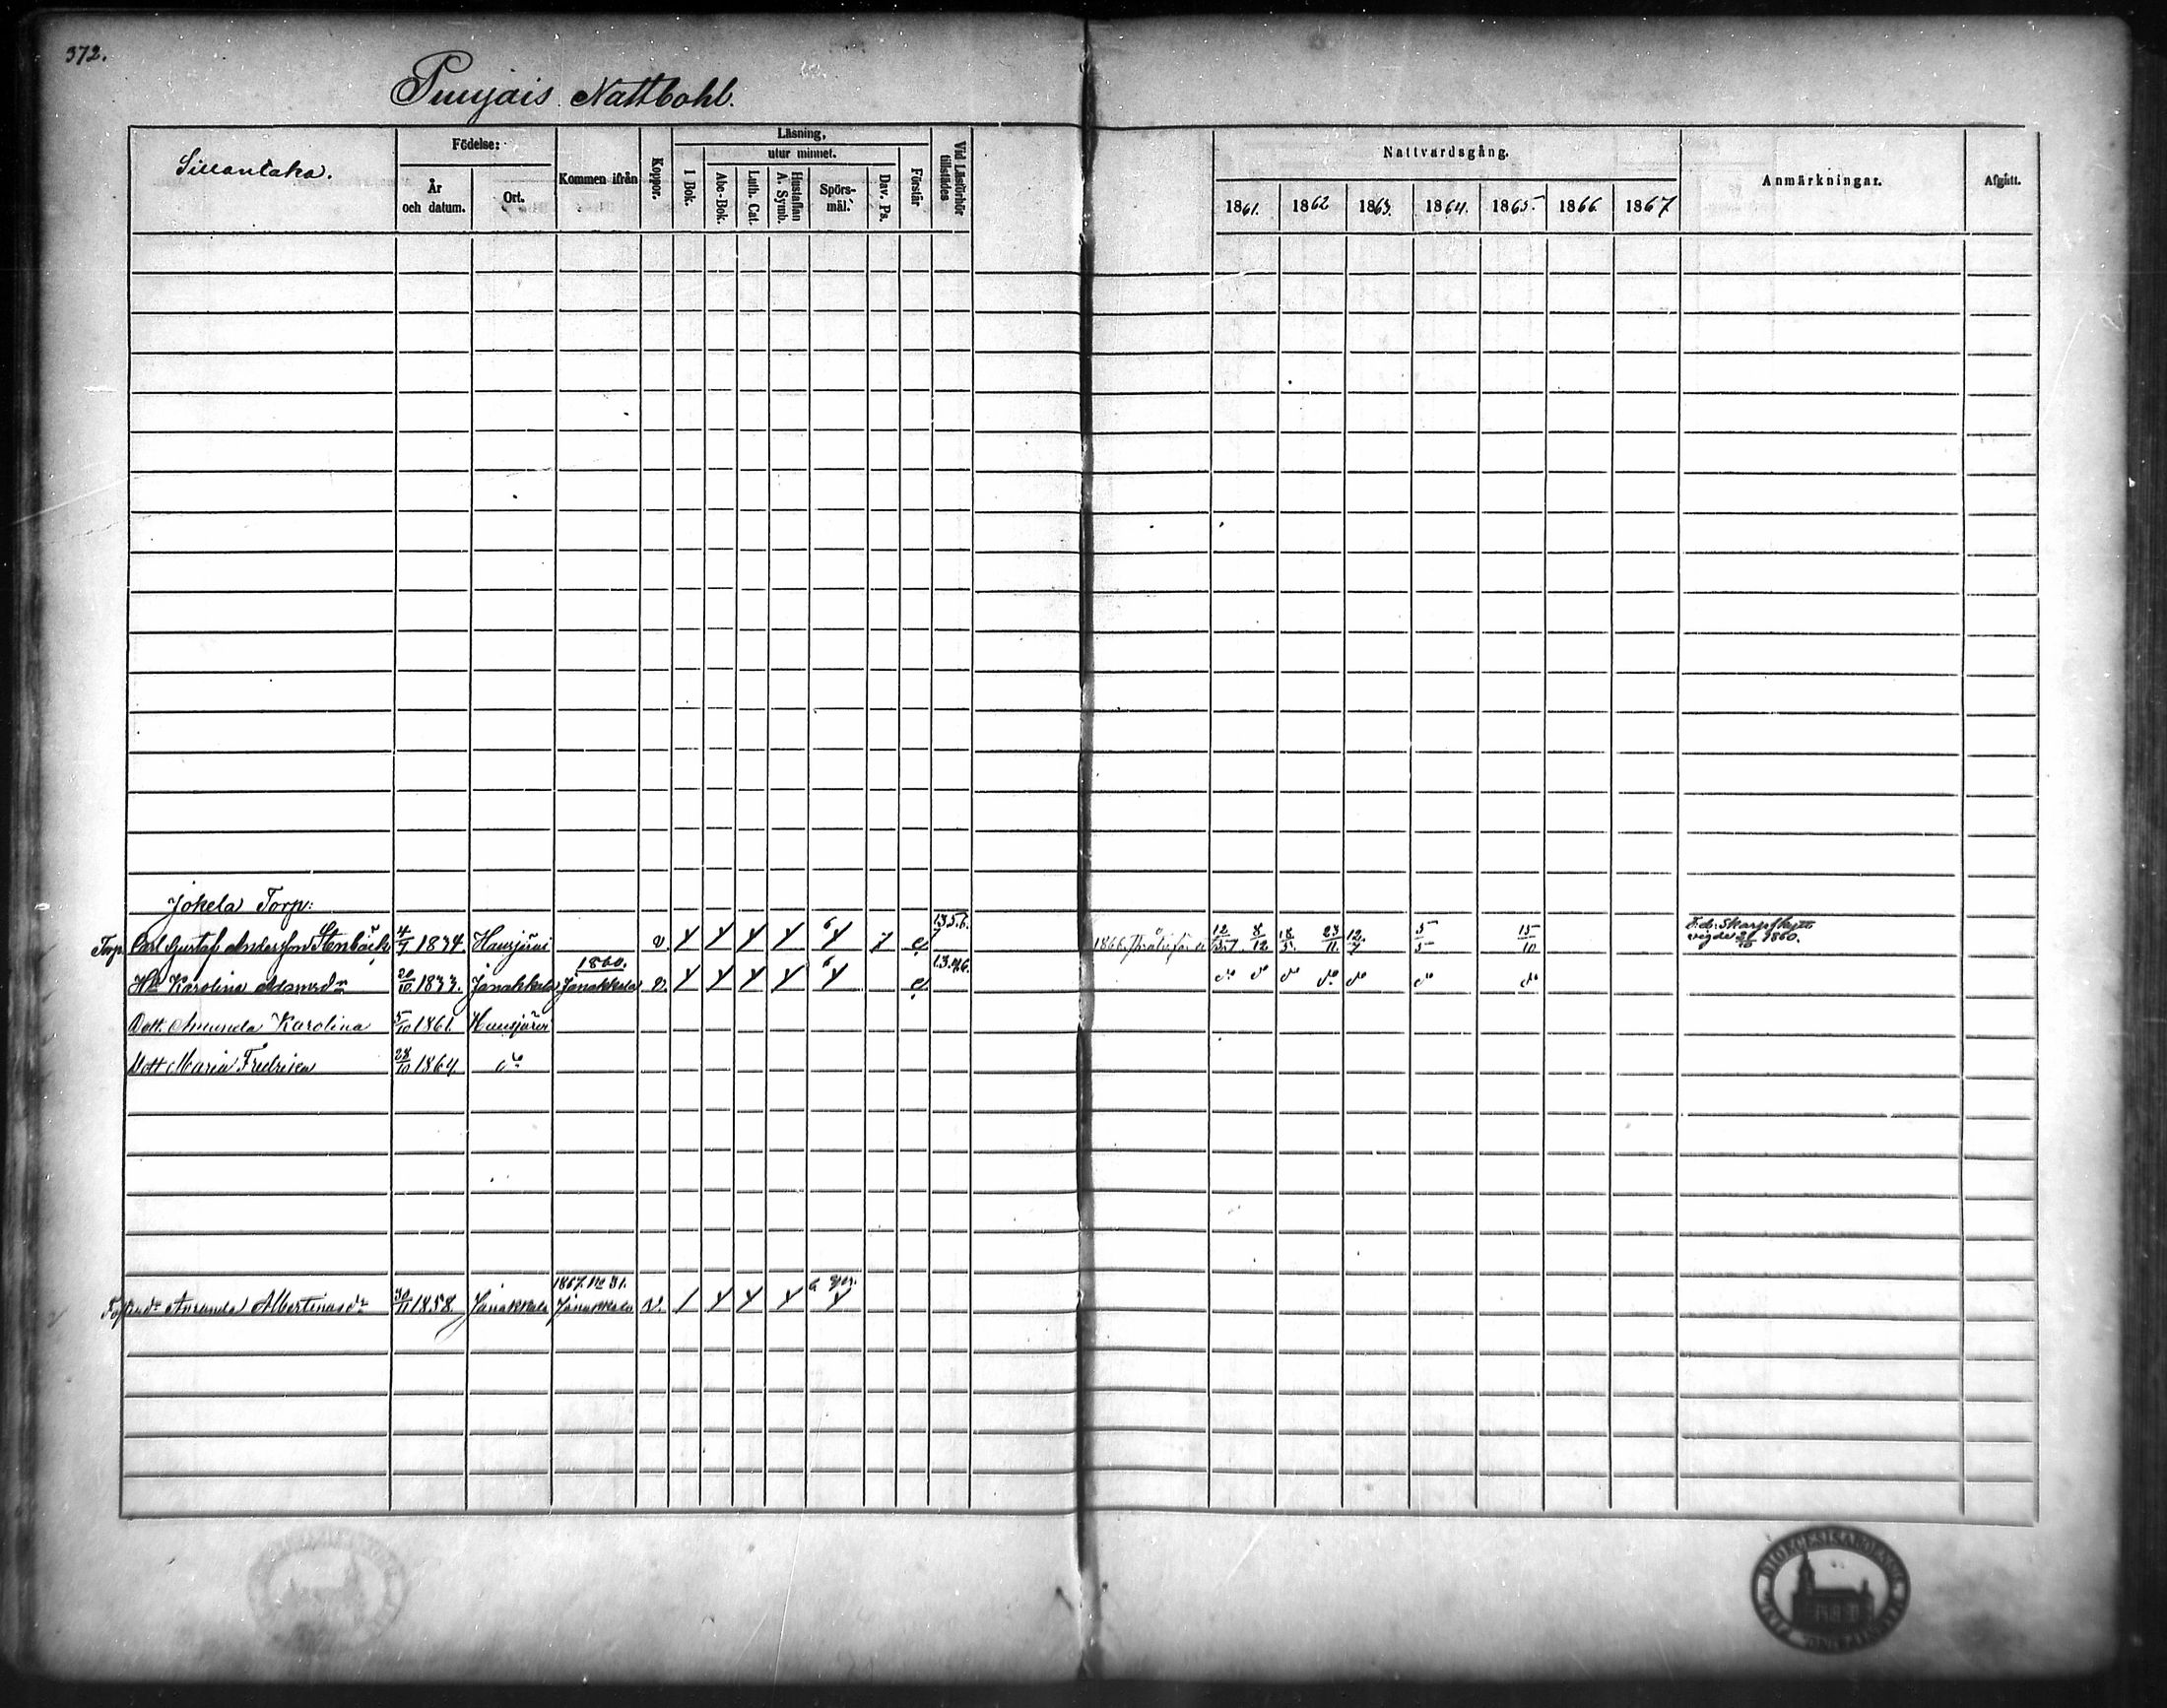 372.
Puujais Nattbohl.
Sillantaka.
Födelse:
År och datum.
Ort.
Kommen ifrån
Koppor.
Läsning,
I Bok.
utur minnet.
Abc-Bok.
Luth. Cat.
Hustaflan A. Symb.
Spörsmål.
Dav. Ps.
Förstår
Vid Läsförhör tillstädes
Nattvardsgång.
1861. 1862 1863. 1864. 1865 1866 1867
Anmärkningar.
Afgått.
Jokela Torp:
Torp. Carl Gustaf Andersson Stenbäck 4/7 1834. Hausjärvi v 1.3.5.6. 1866. 12/5 8/12 18/5 23/11 12/7 5/5 15/10 F.d. Skarpskytt vigde 1860.
Hu Karolina Adamsdr 20/10 1833. Janakkala 1860. Janakkala v. 1.3.4.6. do do do do do do do
Dott. Amanda Karolina 5/10 1861. Hausjärvi
Dott Maria Fredrika 28/10 1864 do
Amanda Albertinasdr 30/11 1858. Janakkala 1867. No 31. Janakkala v.